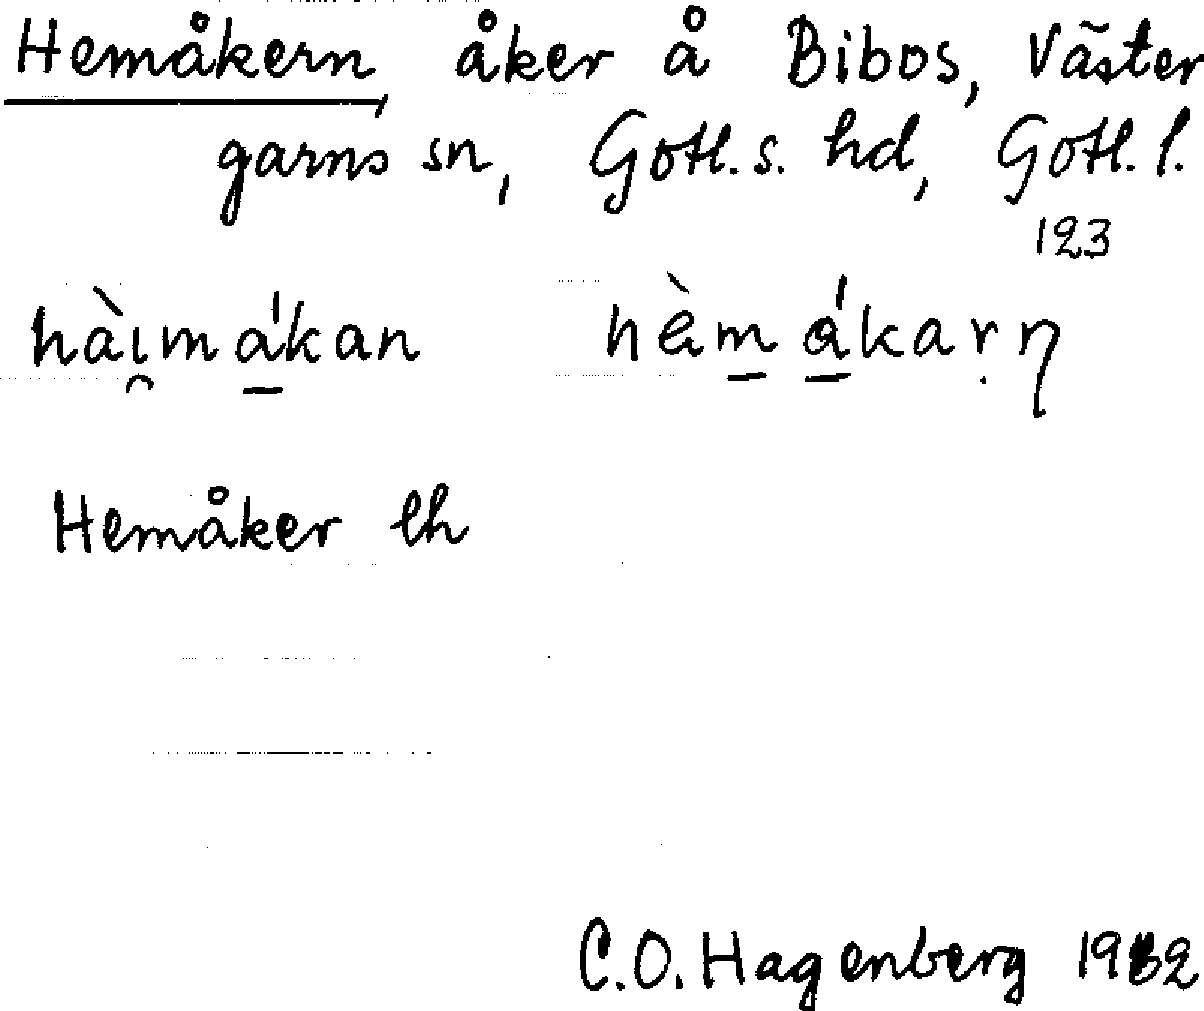 Hemåkern, åker å Bibos, Väster
garns sn, Gotl. s. hd, Gotl. l.
123
hài̯mákan hèmákarṇ
Hemåker lh
C.O. Hagenberg